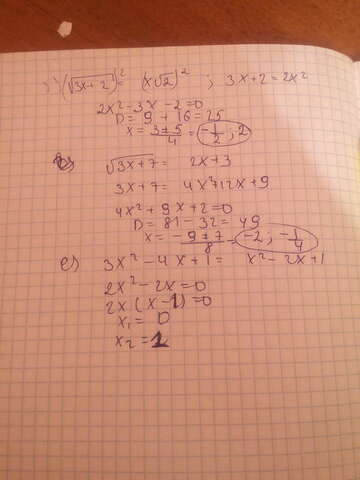 (√3x+2)² = (x√2)² ; 3x+2=2x²
2x²-3x-2=0
D= 9 + 16=25
x= 3±5/4 = -1/2; 2
√3x+7 = 2x+3
3x+7= 4x²+12x+9
4x²+9x+2=0
D= 81-32= 49
x= -9±7/8 = -2; -1/4
e) 3x²-4x+1= x²-2x+1
2x²-2x=0
2x(x-1)=0
x₁= 0
x₂=1